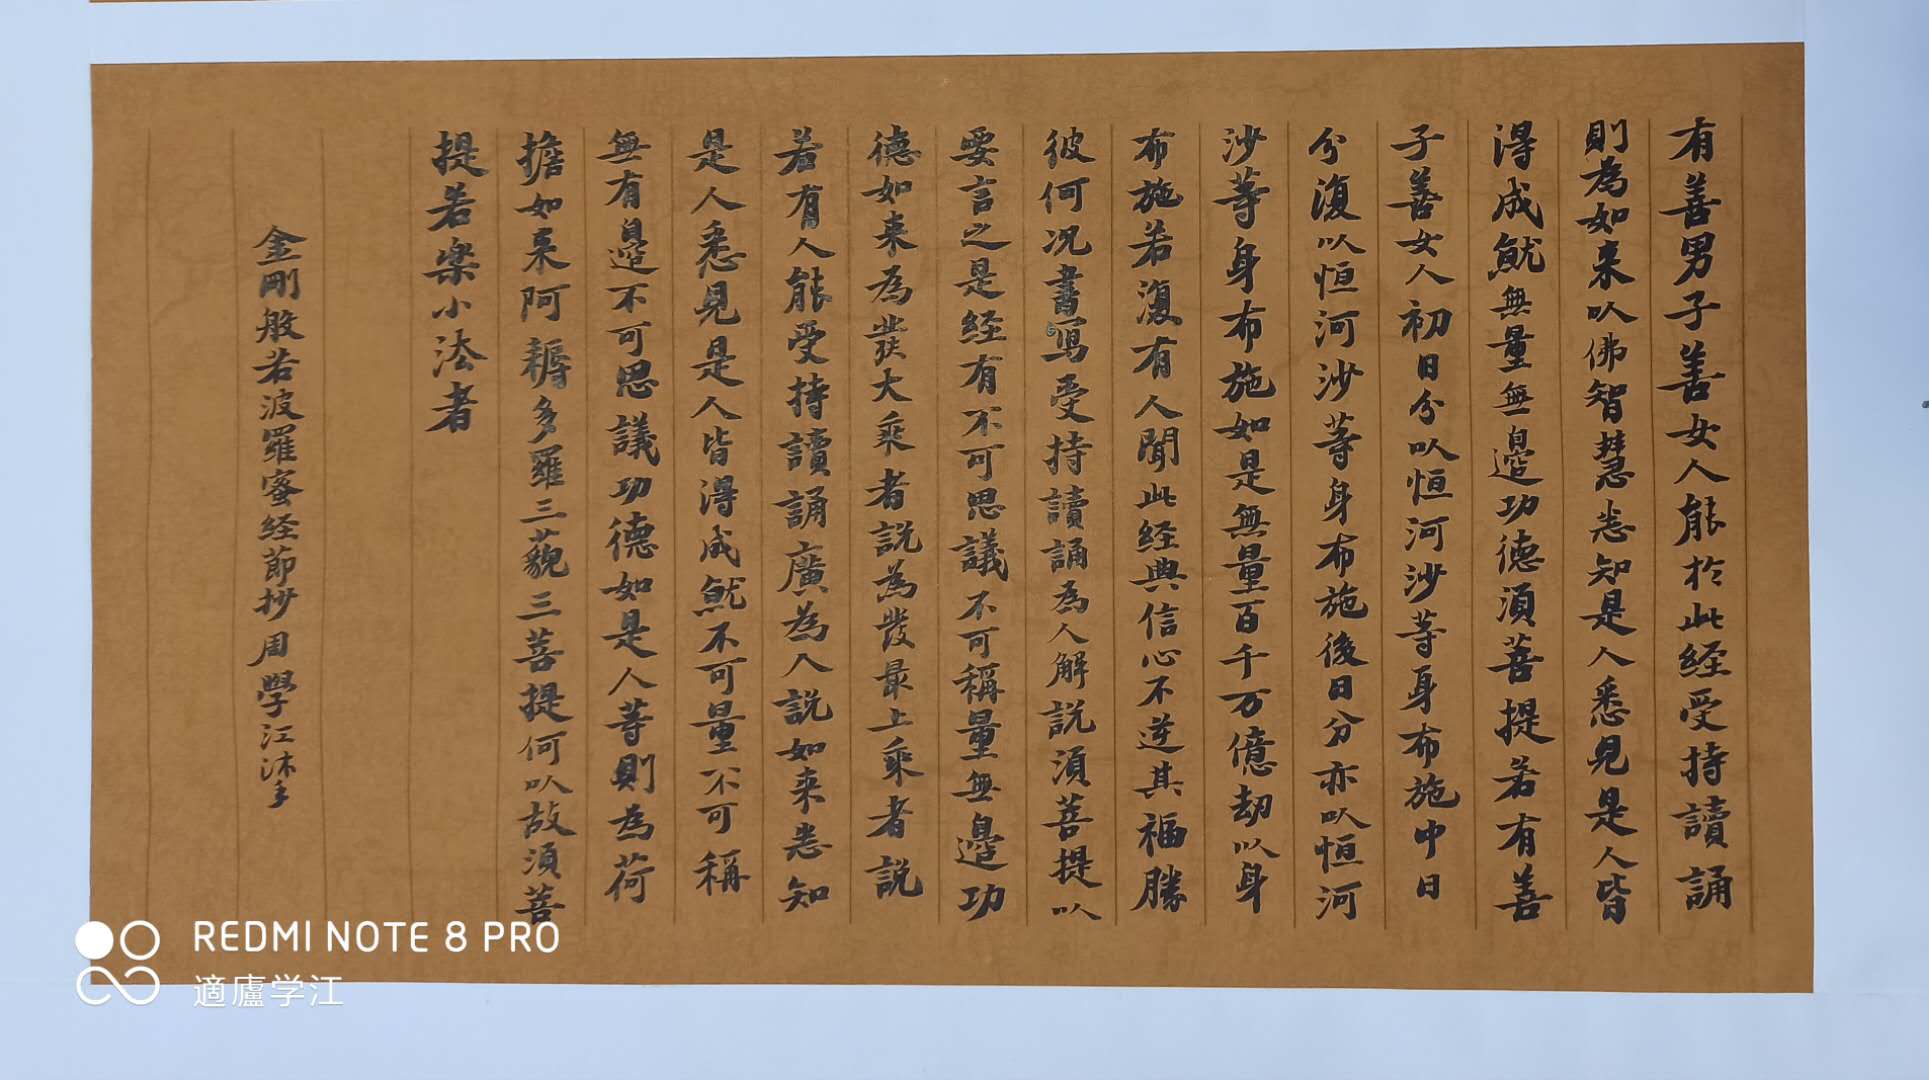 有善男子善女人能於此経受持讀誦
則為如来以佛智慧悉知是人悉見是人皆
得成就無量無邊功德須菩提若有善
子善女人初日分以恒河沙等身布施中日
分復以恒河沙等身布施後日分亦以恒河
沙等身布施如是無量百千万億劫以身
布施若復有人聞此経典信心不逆其福勝
彼何况書寫受持讀誦為人解説須菩提以
要言之是経有不可思議不可稱量無邊功
德如来為發大乘者説為發最上乘者説
若有人能受持讀誦廣為人説如来悉知
是人悉見是人皆得成就不可量不可稱
無有邊不可思議功德如是人等則為荷
擔如来阿耨多羅三藐三菩提何以故須菩
提若樂小法者
金剛般若波羅蜜経節抄周學江沐手
REDMI NOTE 8 PRO
適廬学江